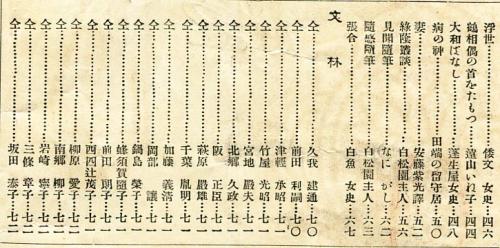 浮世……………倭文 女史…四六
鎚相偶の首をたもつ…遠山いね子…四四
大和ばなし……………蓬生屋女史…四八
病の神……………田端の留守居…五〇
妻……………安藤紫光譯…五四
綠蔭叢談……………白松園主人…五六
見聞隨筆……………なにがし…六二
隨感隨筆……………白松園主人…六三
張合……………白魚 女史…六七
文林
仝……………久我 建通…七〇
仝……………前田 利嗣…七〇
仝……………津輕 承昭…七一
仝……………竹屋 光昭…七一
仝……………宮地 嚴夫…七一
仝……………北鄉 久政…七一
仝……………阪 正臣…七一
仝……………萩原 嚴雄…七一
仝……………千葉 胤明…七一
仝……………加藤 義清…七一
仝……………岡部 讓…七一
仝……………鍋島 榮子…七一
仝……………蜂須賀隨子…七一
仝……………前田 朗子…七一
仝……………四辻茂子…七一
仝……………柳原 愛子…七二
仝……………南鄉 柳子…七二
仝……………岩崎 寧子…七二
仝……………三條 章子…七二
仝……………坂田 泰子…七二